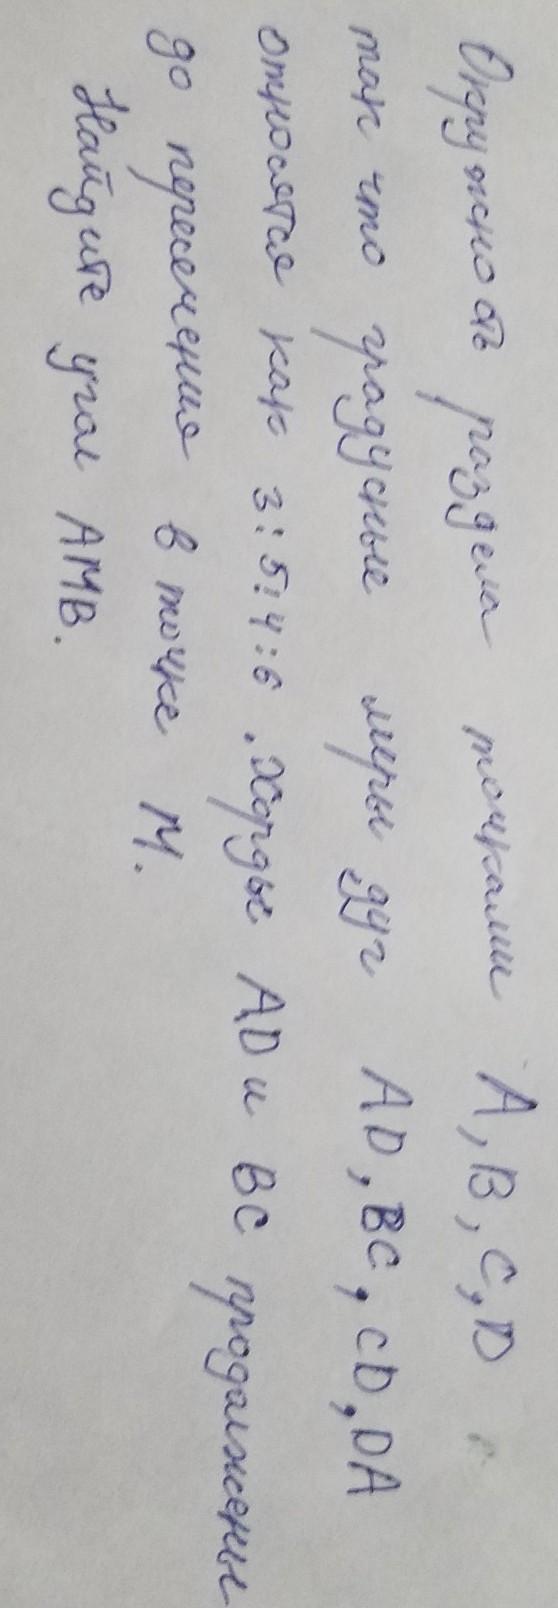 Окружность раздела точками A, B, C, D
так что градусные меры дуг AD, BC, CD, DA
относятся как 3:5:4:6. Хорды AD и BC продолжены
до пересечения в точке M.
Найдите угол AMB.